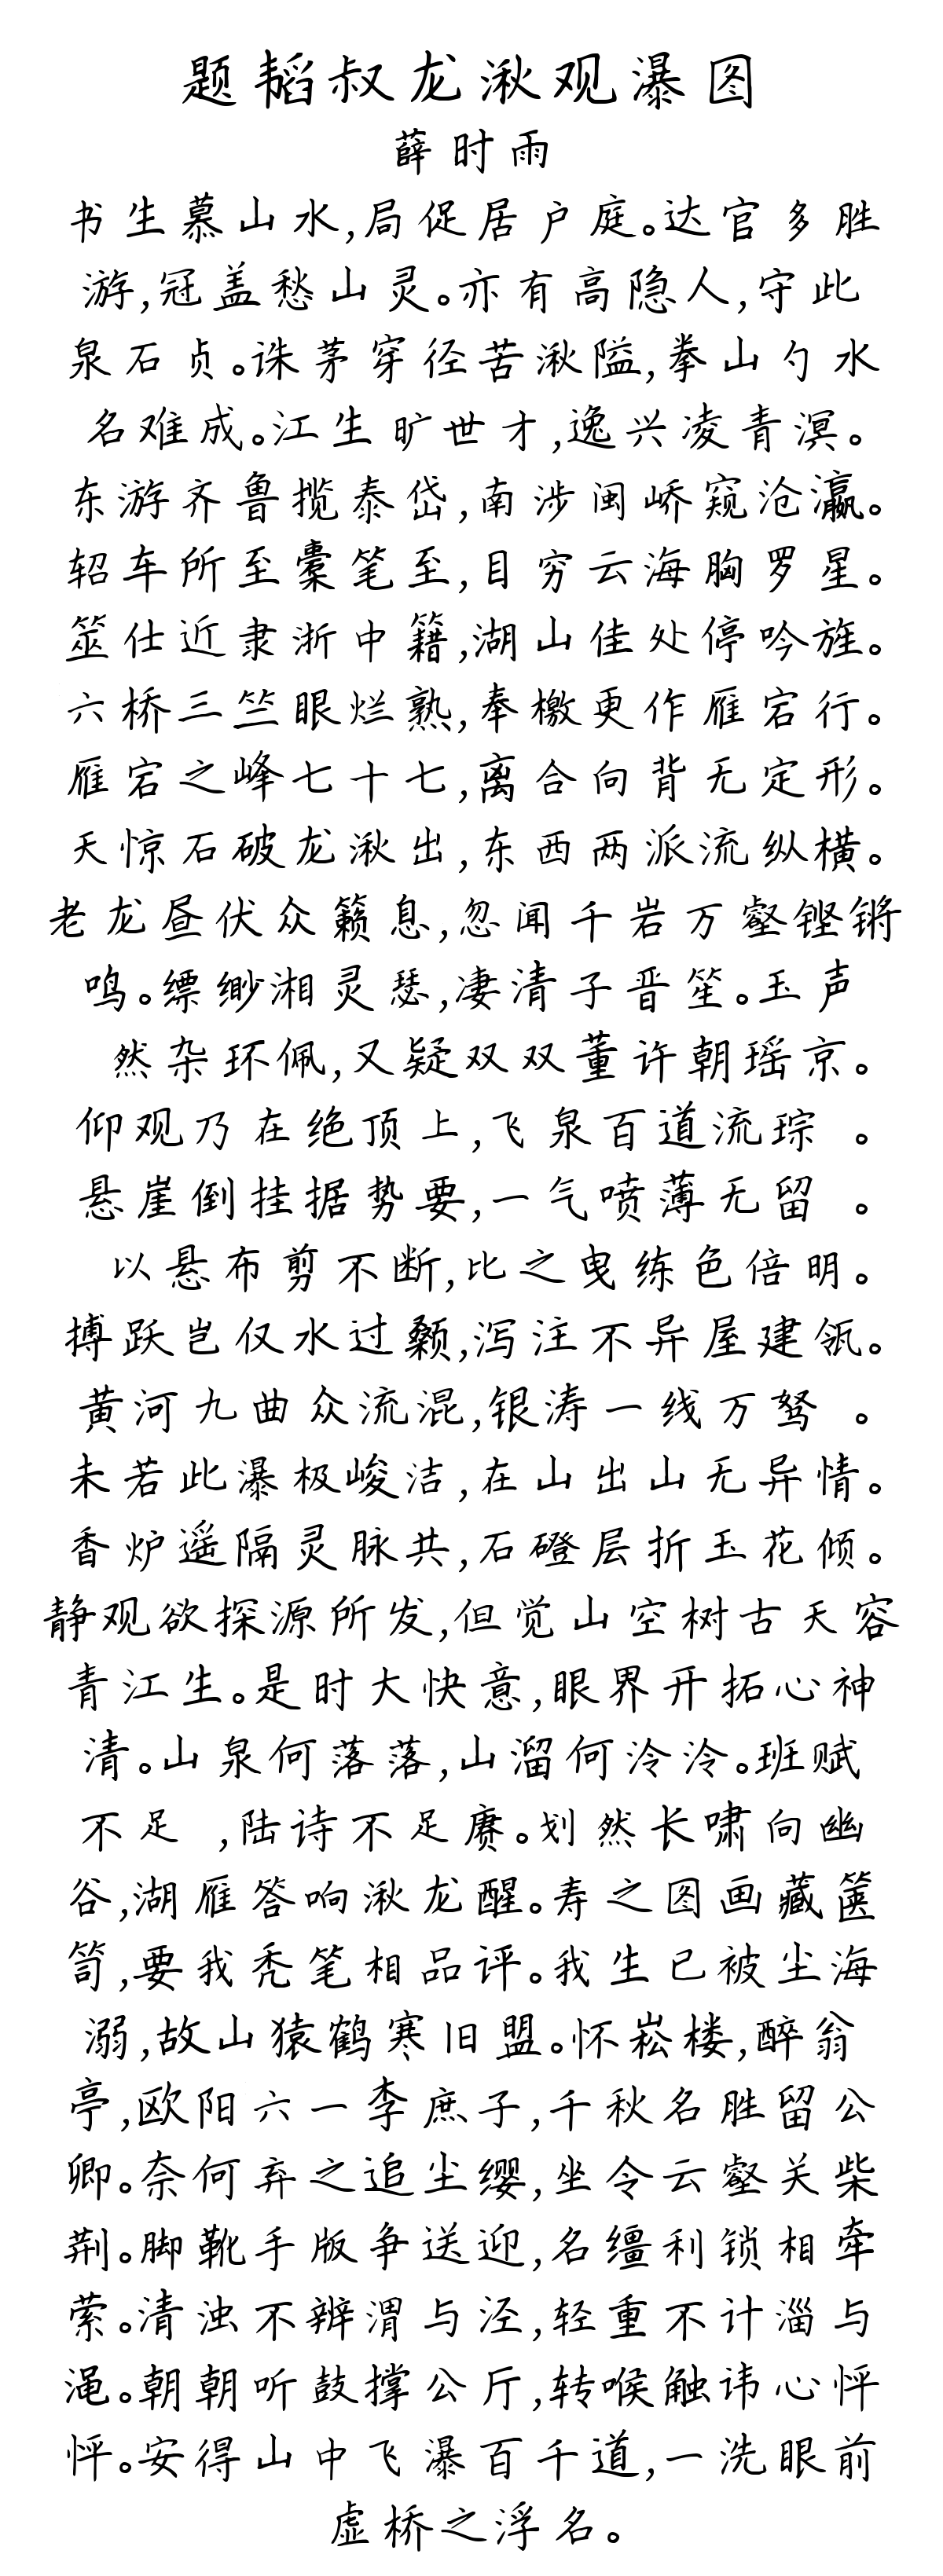 题韬叔龙湫观瀑图
薛时雨
书生慕山水,局促居户庭。达官多胜
游,冠盖愁山灵。亦有高隐人,守此
泉石贞。诛茅穿径苦湫隘,拳山勺水
名难成。江生旷世才,逸兴凌青溟。
东游齐鲁揽泰岱,南涉闽峤窥沧瀛。
轺车所至橐笔至,目穷云海胸罗星。
筮仕近隶浙中籍,湖山佳处停吟旌。
六桥三竺眼烂熟,奉檄更作雁宕行。
雁宕之峰七十七,离合向背无定形。
天惊石破龙湫出,东西两派流纵横。
老龙昼伏众籁息,忽闻千岩万壑铿锵
鸣。缥缈湘灵瑟,凄清子晋笙。玉声
然杂环佩,又疑双双董许朝瑶京。
仰观乃在绝顶上,飞泉百道流琮 。
悬崖倒挂据势要,一气喷薄无留 。
以悬布剪不断,比之曳练色倍明。
搏跃岂仅水过颡,泻注不异屋建瓴。
黄河九曲众流混,银涛一线万骛 。
未若此瀑极峻洁,在山出山无异情。
香炉遥隔灵脉共,石磴层折玉花倾。
静观欲探源所发,但觉山空树古天容
青江生。是时大快意,眼界开拓心神
清。山泉何落落,山溜何泠泠。班赋
不足 ,陆诗不足赓。划然长啸向幽
谷,湖雁答响湫龙醒。寿之图画藏箧
笥,要我秃笔相品评。我生已被尘海
溺,故山猿鹤寒旧盟。怀崧楼,醉翁
亭,欧阳六一李庶子,千秋名胜留公
卿。奈何弃之追尘缨,坐令云壑关柴
荆。脚靴手版争送迎,名缰利锁相牵
萦。清浊不辨渭与泾,轻重不计淄与
渑。朝朝听鼓撑公厅,转喉触讳心怦
怦。安得山中飞瀑百千道,一洗眼前
虚桥之浮名。